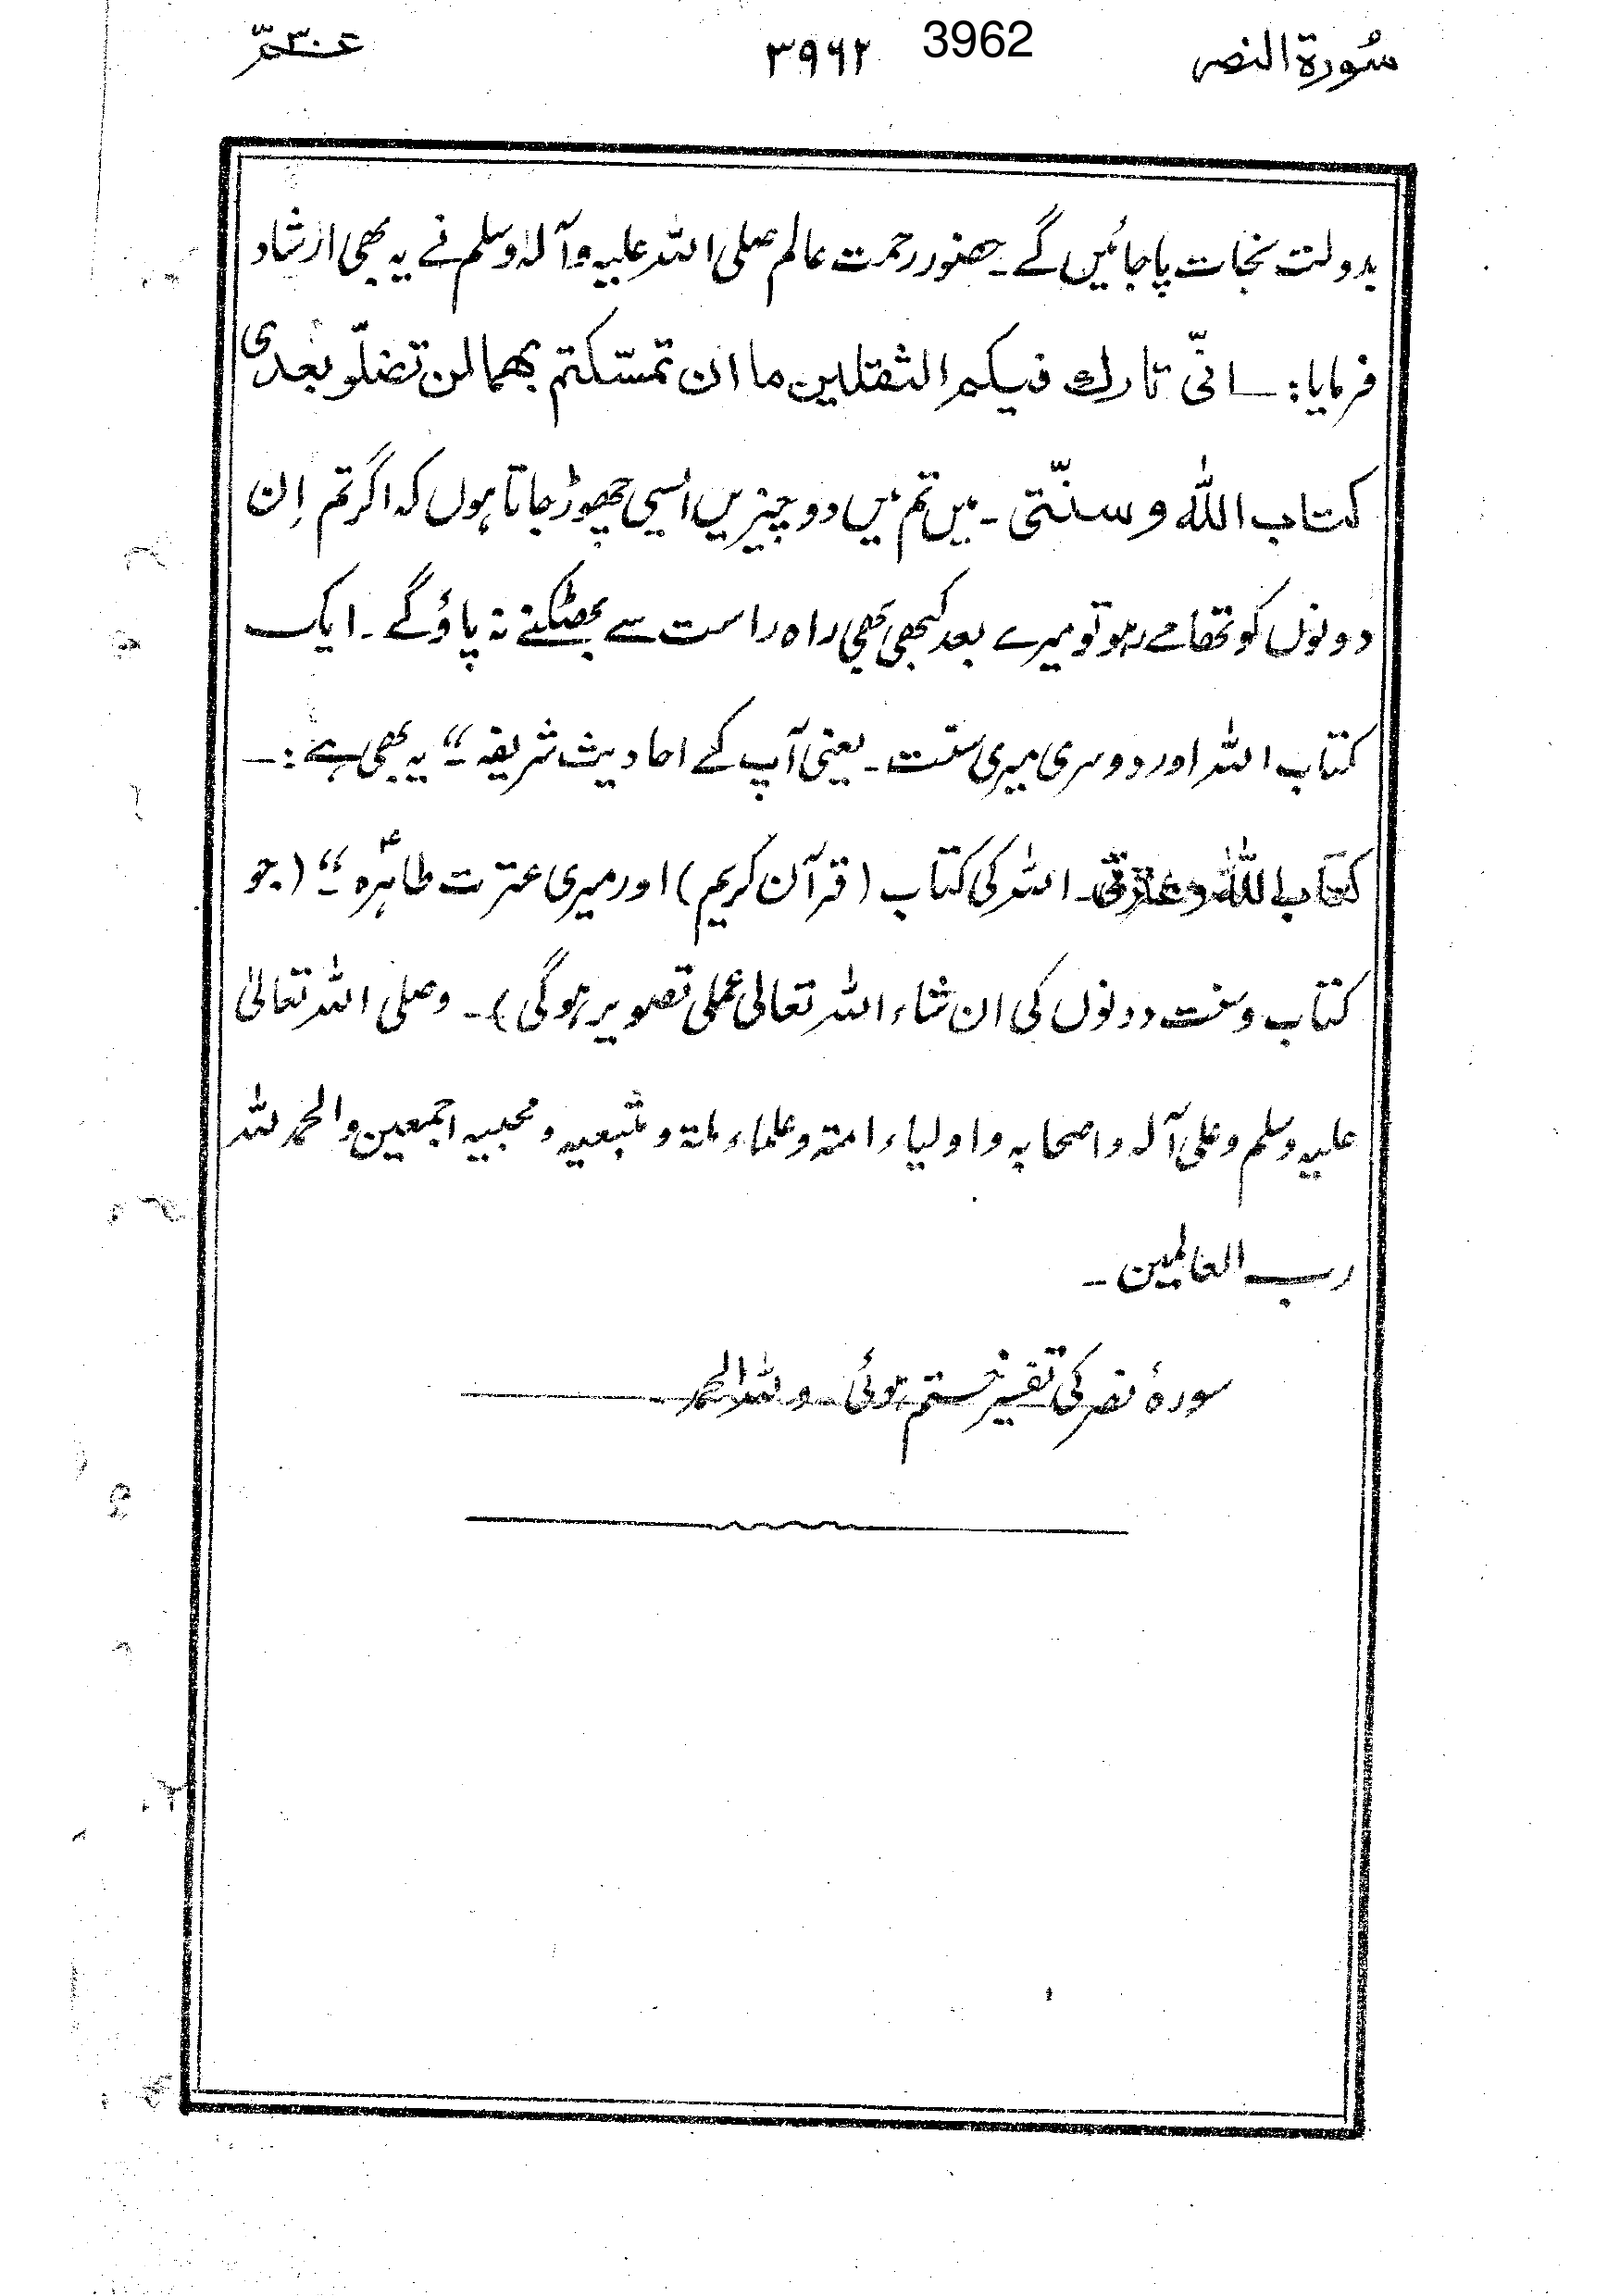 سُورة النصر ۳۹۶۲ 3962 عــمّ ۳۰
بدولت نجات پا جائیں گے۔ حضور رحمت عالم صلی اللہ علیہ وآلہٖ وسلم نے یہ بھی ارشاد
فرمایا :۔ انّی تارك فیکم الثقلین ما ان تمسّکتم بھما لن تضلّو بعدی
کتاب اللّٰہ و سنّتی ۔ میں تم میں دو چیزیں ایسی چھوڑ جاتا ہوں کہ اگر تم اِن
دونوں کو تھامے رہو تو میرے بعد کبھی بھی راہ راست سے بھٹکنے نہ پاؤ گے۔ ایک
کتاب اللہ اور دوسری میری سنّت ۔ یعنی آپ کے احادیث شریفہ ۔“ یہ بھی ہے :۔
کتاب اللّٰہ وعترتی۔ اللہ کی کتاب (قرآن کریم) اور میری عترت طاہرہؑ ۔“ (جو
کتاب و سنت دونوں کی ان شاء اللہ تعالی عملی تصویر ہوگی) ۔ وصلی اللہ تعالیٰ
علیہ وسلم وعلی آلہ واصحابہ واولیاء امتہ وعلماء ملۃ ومتبعیہ ومحبیہ اجمعین والحمد للہ
رب العالمین ۔
سورۂ نصر کی تفسیر ختم ہوئی ۔ وللہ الحمد